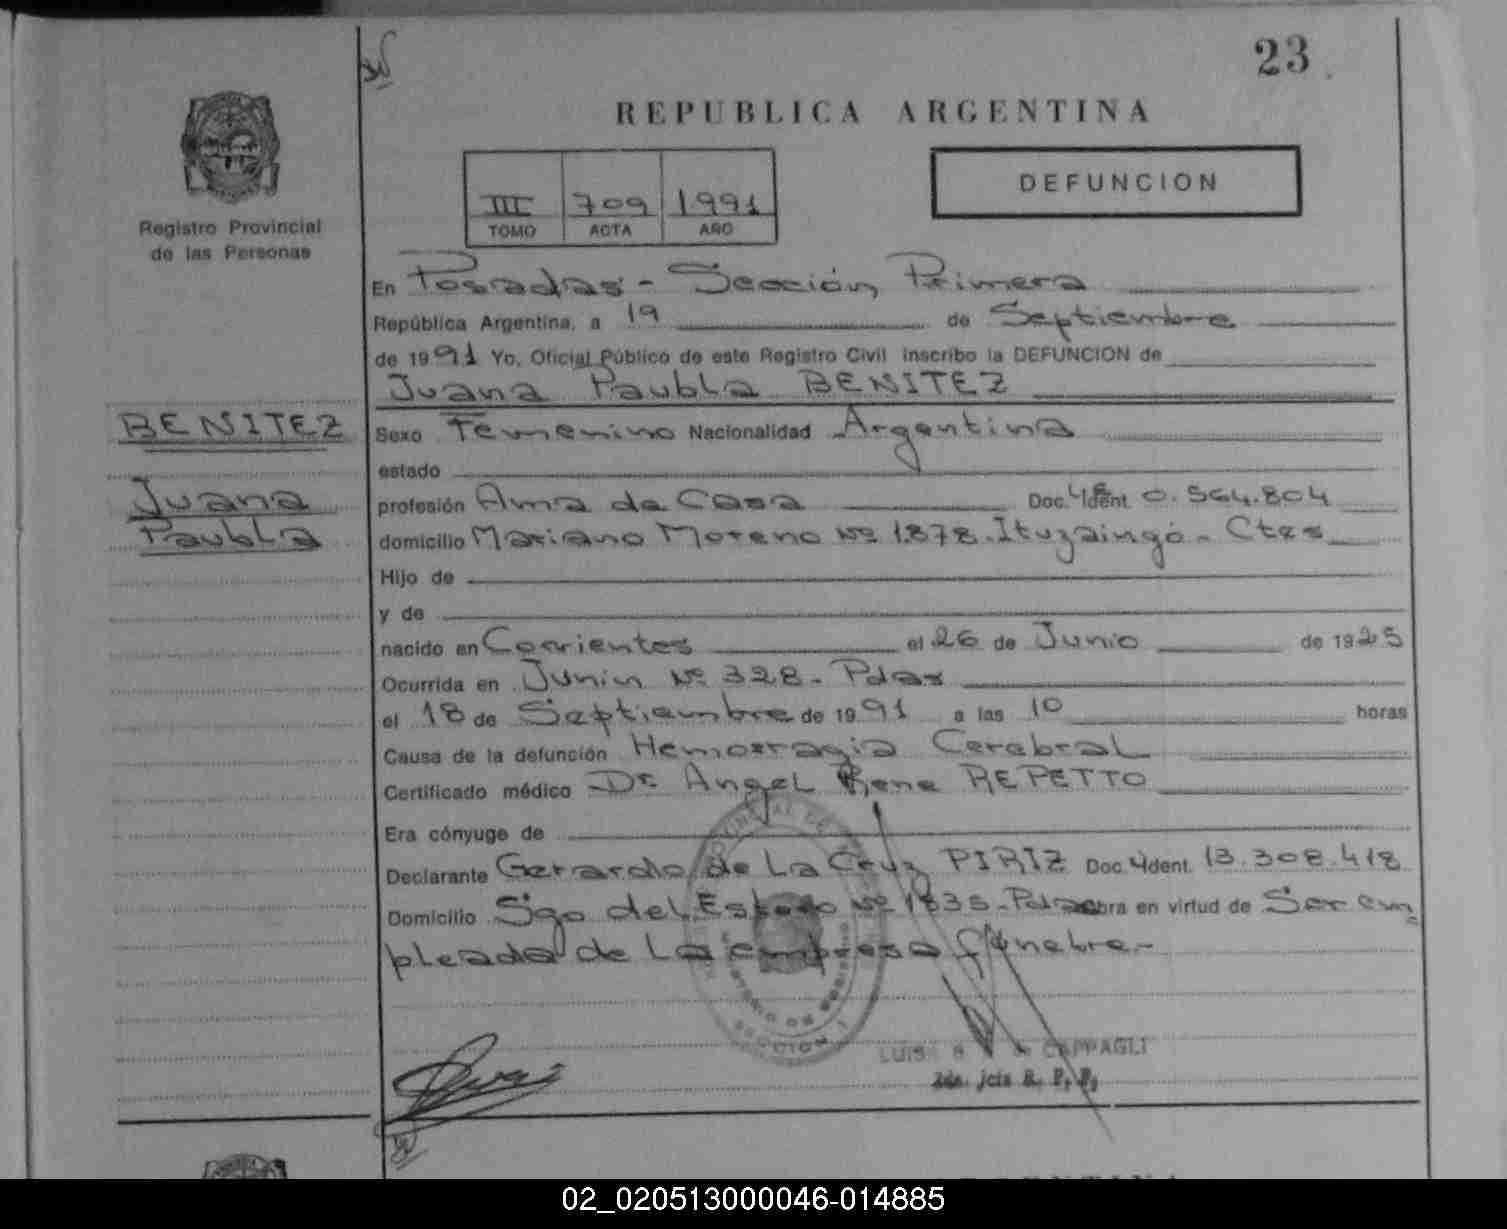 23
REPUBLICA ARGENTINA
DEFUNCION
III 709 1991
TOMO ACTA AÑO
Registro Provincial
de las Personas
En Posadas - Sección Primera
República Argentina, a 19 de Septiembre
de 1991 Yo, Oficial Público de este Registro Civil inscribo la DEFUNCION de
Juana Paubla BENITEZ
BENITEZ
Juana
Paubla
Sexo Femenino Nacionalidad Argentina
estado
profesión Ama de Casa Doc. Ident. 0.564.804
domicilio Mariano Moreno Nº 1.878. Ituzaingó - Ctes
Hijo de
y de
nacido en Corrientes el 26 de Junio de 1925
Ocurrida en Junin Nº 328 - Pdas
el 18 de Septiembre de 1991 a las 10 horas
Causa de la defunción Hemorragia Cerebral
Certificado médico Dr Angel Rene REPETTO
Era cónyuge de
Declarante Gerardo de La Cruz PIRIZ Doc. Ident. 13.308.418
Domicilio Sgo del Estero Nº 1835 - Pdas obra en virtud de Ser em
pleado de La empresa fúnebre.-
SECCION 1
CAPPAGLI
R. P. P.
02_020513000046-014885